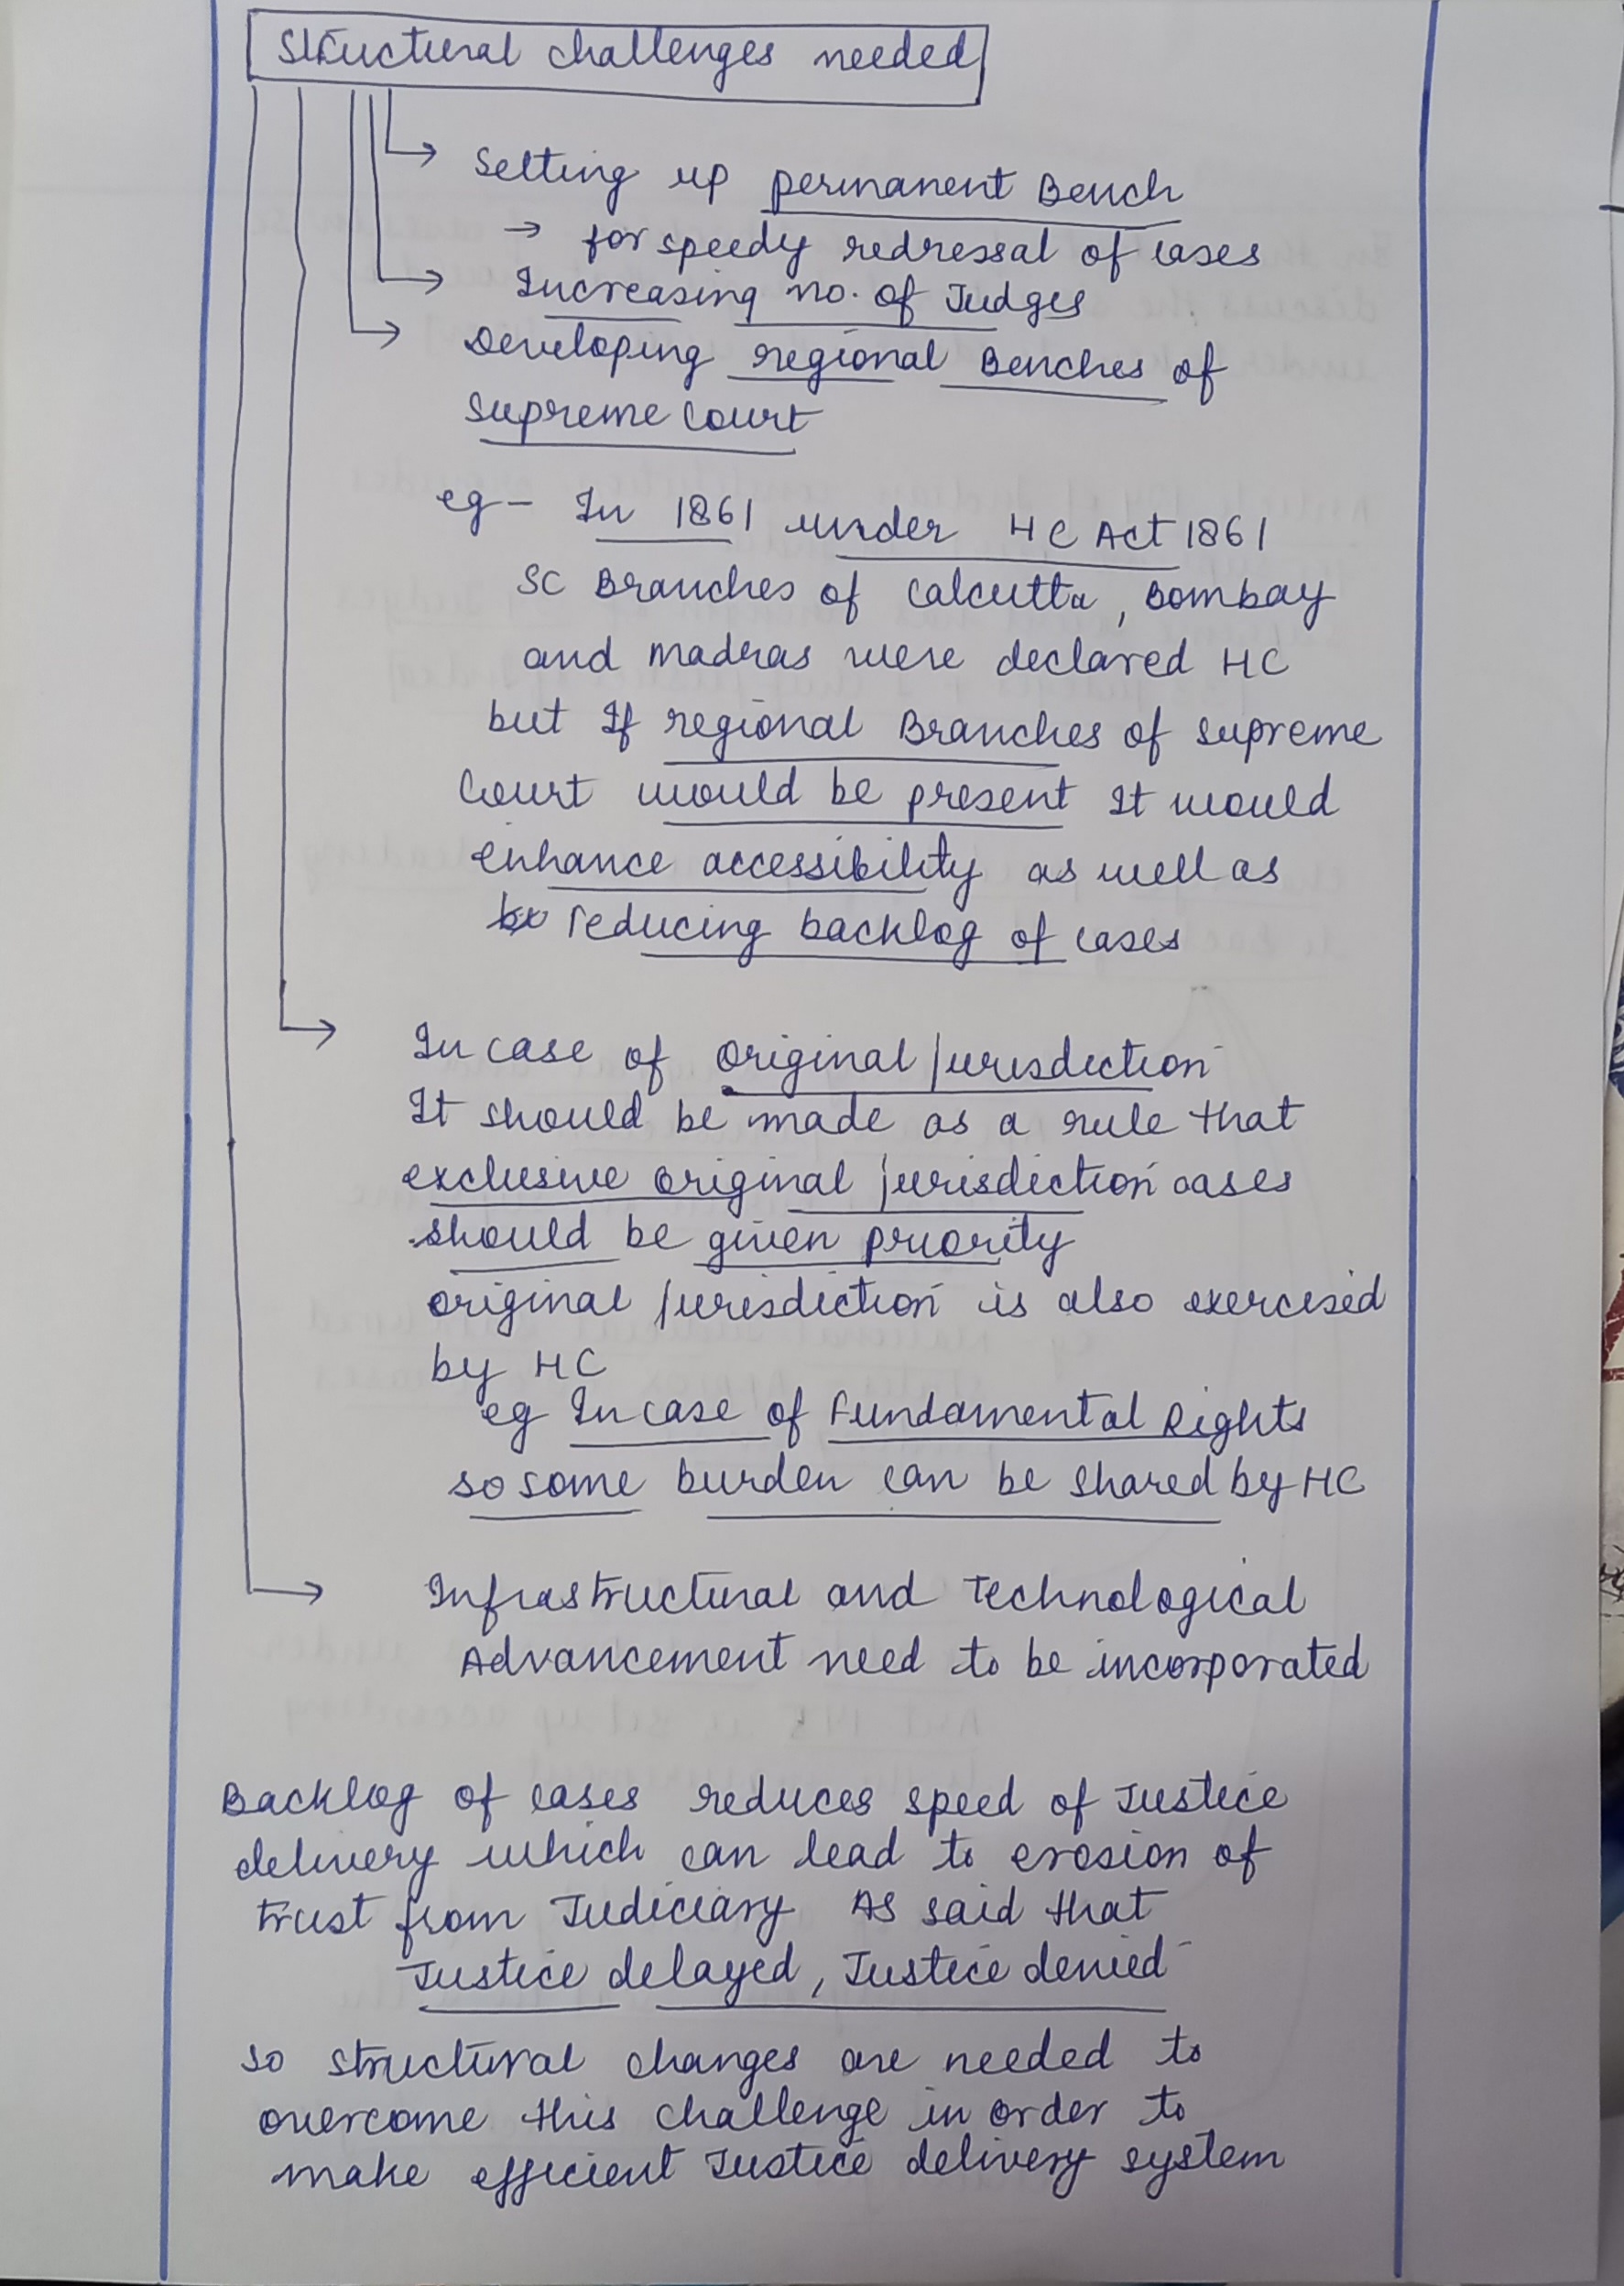 Structural challenges needed
Setting up permanent Bench
→ for speedy redressal of cases
Increasing no. of Judges
Developing regional Benches of
Supreme Court
eg - In 1861 under HC Act 1861
SC Branches of Calcutta, Bombay
and Madras were declared HC
but If regional Branches of Supreme
Court would be present It would
enhance accessibility as well as
reducing backlog of cases
In case of original jurisdiction
It should be made as a rule that
exclusive original jurisdiction cases
should be given priority
original jurisdiction is also exercised
by HC
eg In case of Fundamental Rights
so some burden can be shared by HC
Infrastructural and Technological
Advancement need to be incorporated
Backlog of cases reduces speed of Justice
delivery which can lead to erosion of
trust from Judiciary As said that
Justice delayed, Justice denied
so structural changes are needed to
overcome this challenge in order to
make efficient Justice delivery system